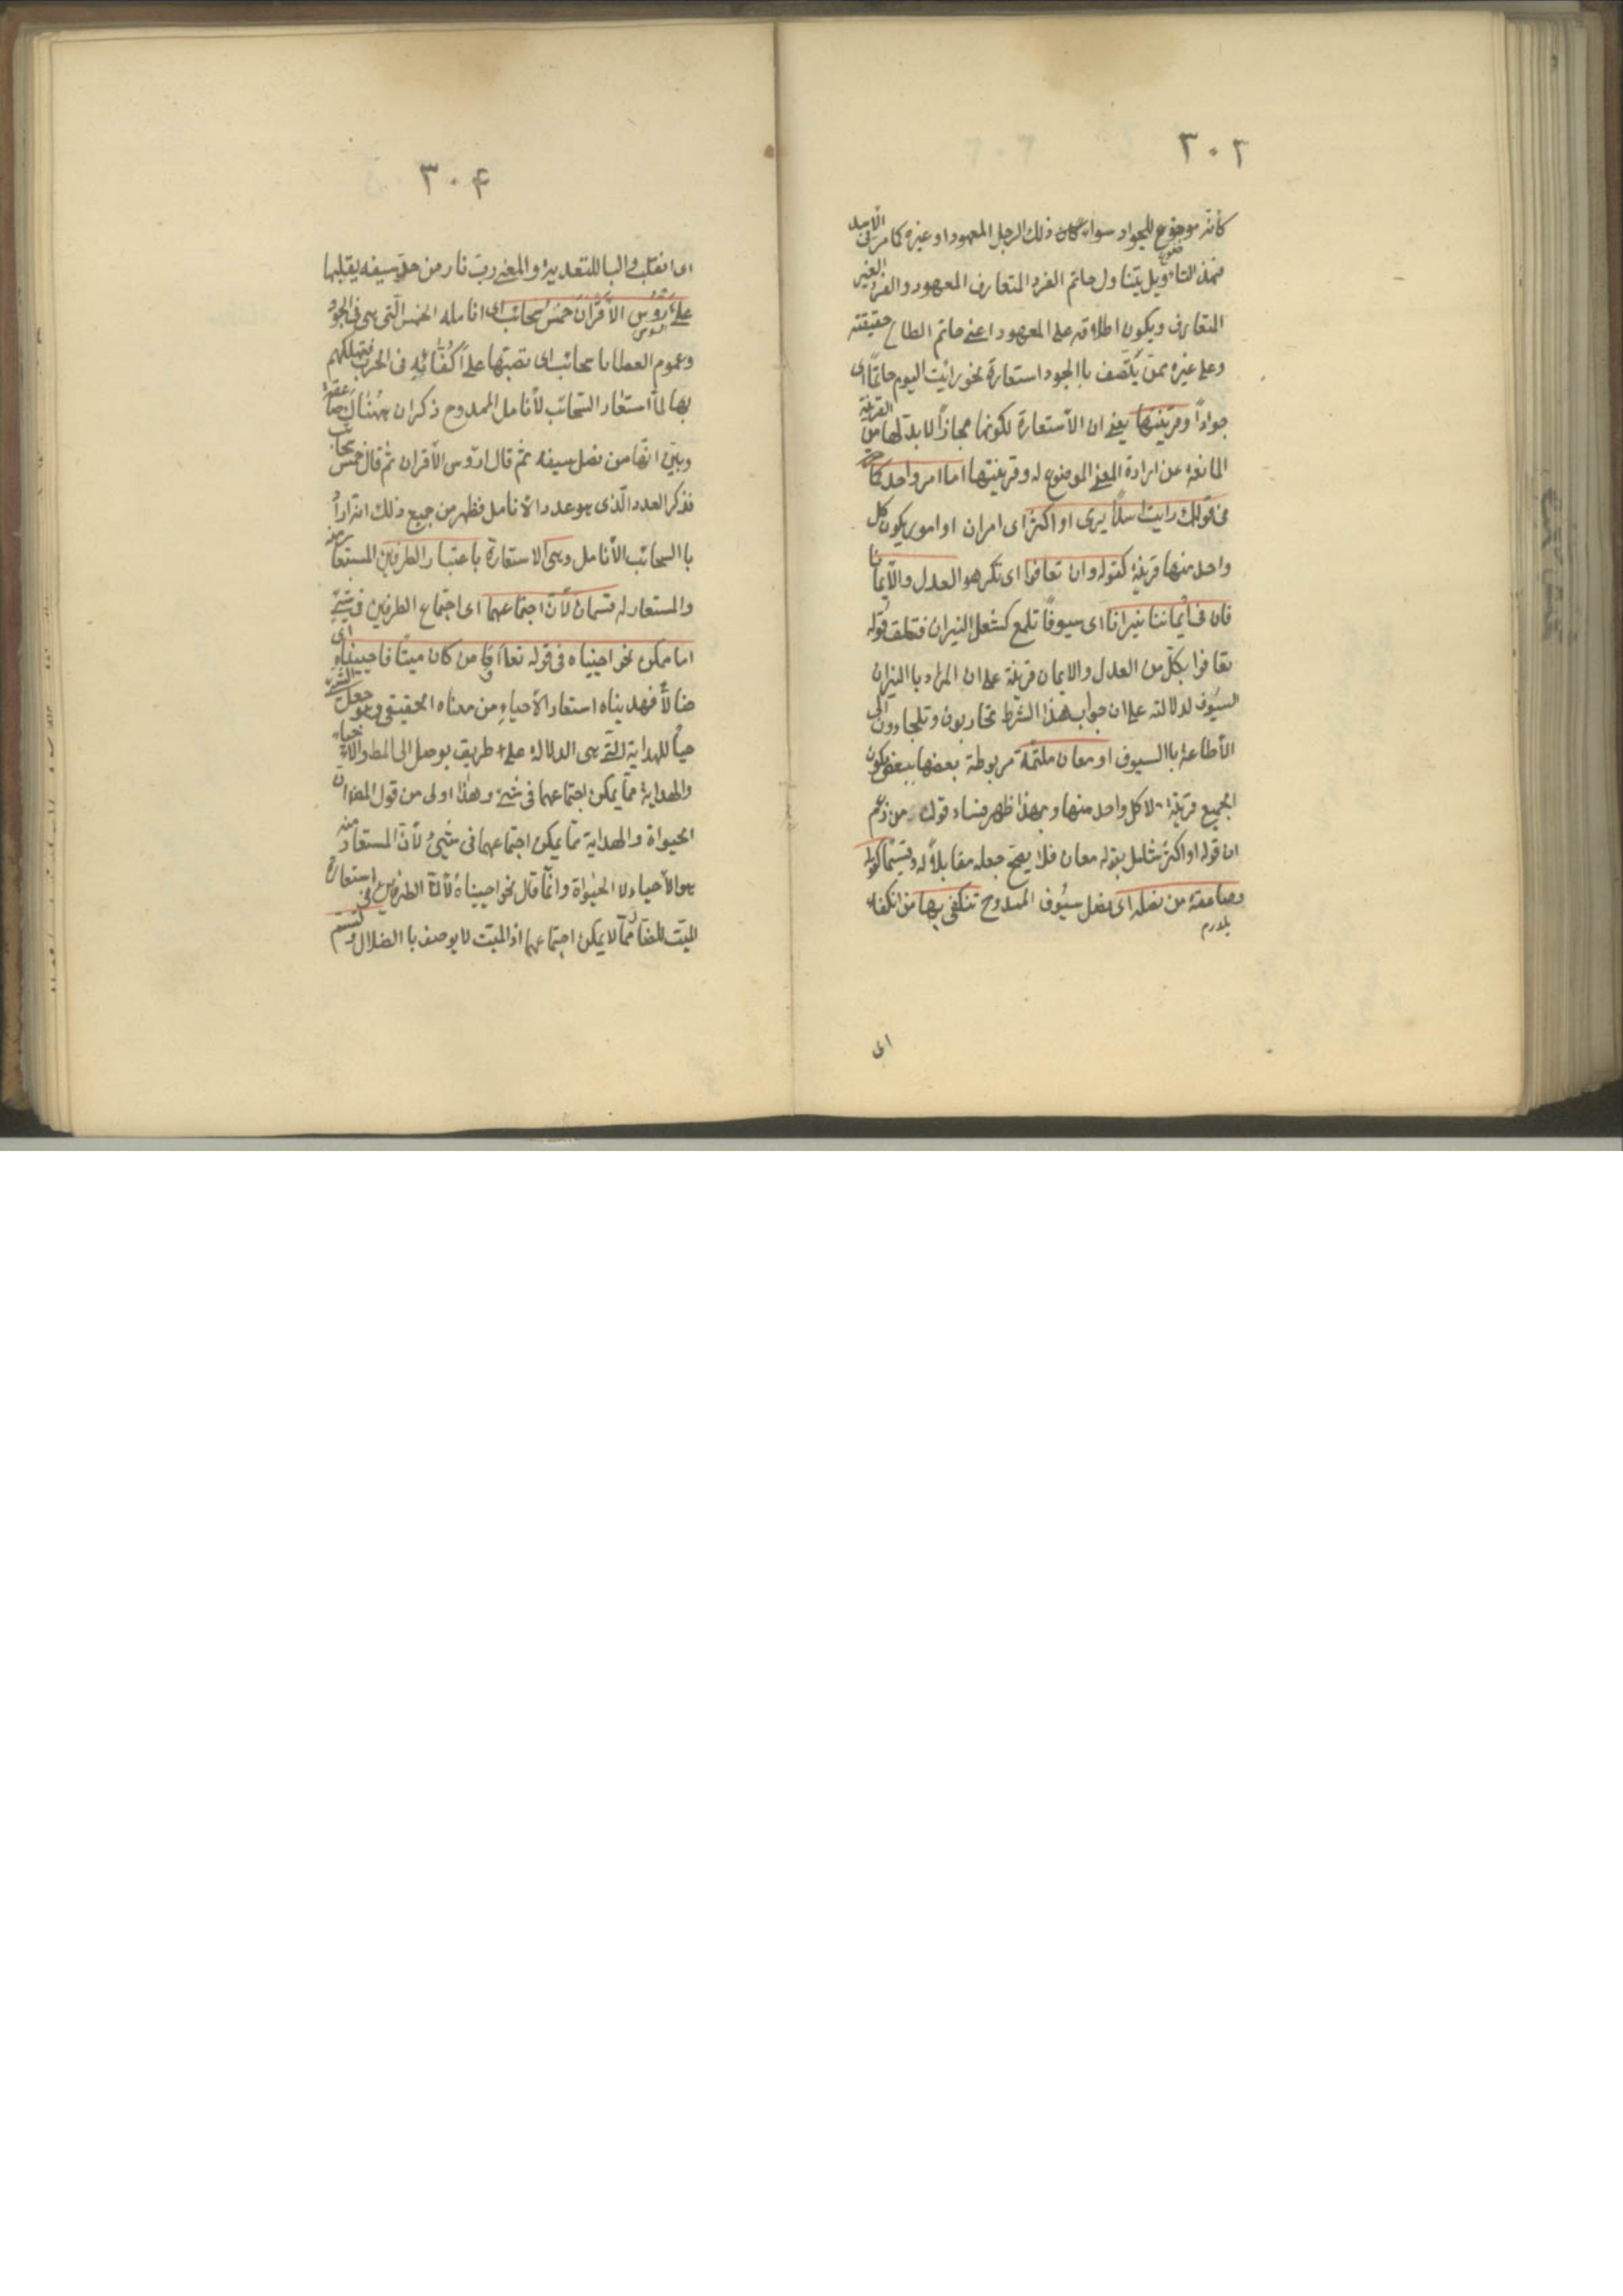 ٣٠٣
كأنه موضوع للجواد سواء كان ذلك الرجل المعهود او غيره كما مر في الاسد
فبهذا التاويل يتناول حاتم الفرد المتعارف المعهود والفرد الغير
المتعارف ويكون اطلاقه على المعهود اعنى حاتم الطاع حقيقته
وعلى غيره ممن يتصف باالجود استعارة نحو رايت اليوم حاتمًا اى
جوادًا وقرينتها يعنى ان الأستعارة لكونها مجازًا لابد لها من القرينة
المانعة عن ارادة المعنى الموضوع له وقرينتها اما امر واحد كما
فى قولك رايت اسدًا يرمى او اكثر اى امران او امور يكون كل
واحد منها قرينة كقوله وان تعافوا اى تكرهوا العدل والأيمانا
فان فى أيماننا نيرانا اى سيوفًا تلمع كشعل النيران فتعلق قوله
تعافوا بكل من العدل والايمان قرينة على ان المراد باالنيران
السيوف لدلالته على ان جواب هذا الشرط تحاربون وتلجاءون الى
الأطاعة باالسيوف او معان ملتئمة مربوطة بعضها ببعض يكون
الجميع قرينة لا كل واحد منها وبهذا ظهر فساد قول من زعم
ان قوله او اكثر شامل بقوله معان فلا يصح جعله مقابلًا له وقسيمًا كقوله
وصاعقة من نصله اى نصل سيوف الممدوح تنكفى بها من انكفاء
يلدرم
اى
٣٠۴
اى انقلب والبا للتعدية والمعنى رب نار من حد سيفه يقلبها
على ارؤس الاقران خمس سحائب اى انامله الخمس التى هى فى الجود
وعموم العطايا سحائب اى تصبها على أكفائه فى الحرب فتهلكهم
بها لما استعار السحائب لأنامل الممدوح ذكر ان هناك صاعقة
وبين انها من نصل سيفه ثم قال ارؤس الأقران ثم قال خمس سحائب
فذكر العدد الذى هو عدد الانامل فظهر من جميع ذلك انه اراد
با السحائب الأنامل وهى الاستعارة باعتبار الطرفين المستعار منه
والمستعار له قسمان لأن اجتماعهما اى اجتماع الطرفين فى شئ
اما ممكن نحو احييناه فى قوله تعا اومن كان ميتًا فاحييناه اى
ضالًا فهديناه استعار الأحياء من معناه الحقيقى وهو جعل الشئ
حيًا للهداية التى هى الدلالة على طريق يوصل الى المط والاحياء
والهداية مما يمكن اجتماعهما فى شئ وهذا اولى من قول المص ان
الحيواة والهداية مما يمكن اجتماعهما فى شئ لأن المستعار منه
هو الأحياء لا الحيواة وانما قال نحو احييناه لأن الطرفين فى استعارة
الميت للضال مما لا يمكن اجتماعهما اذ الميت لا يوصف با الضلال ولتسم